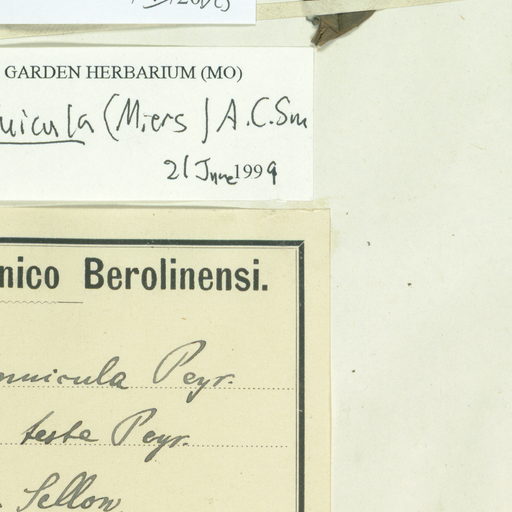 GARDEN HERBARIUM (MO)
uicula (Miers) A.C.Sm
21 June 1999
nico Berolinensi.
nnuicula Peyr.
teste Peyr.
Sellow